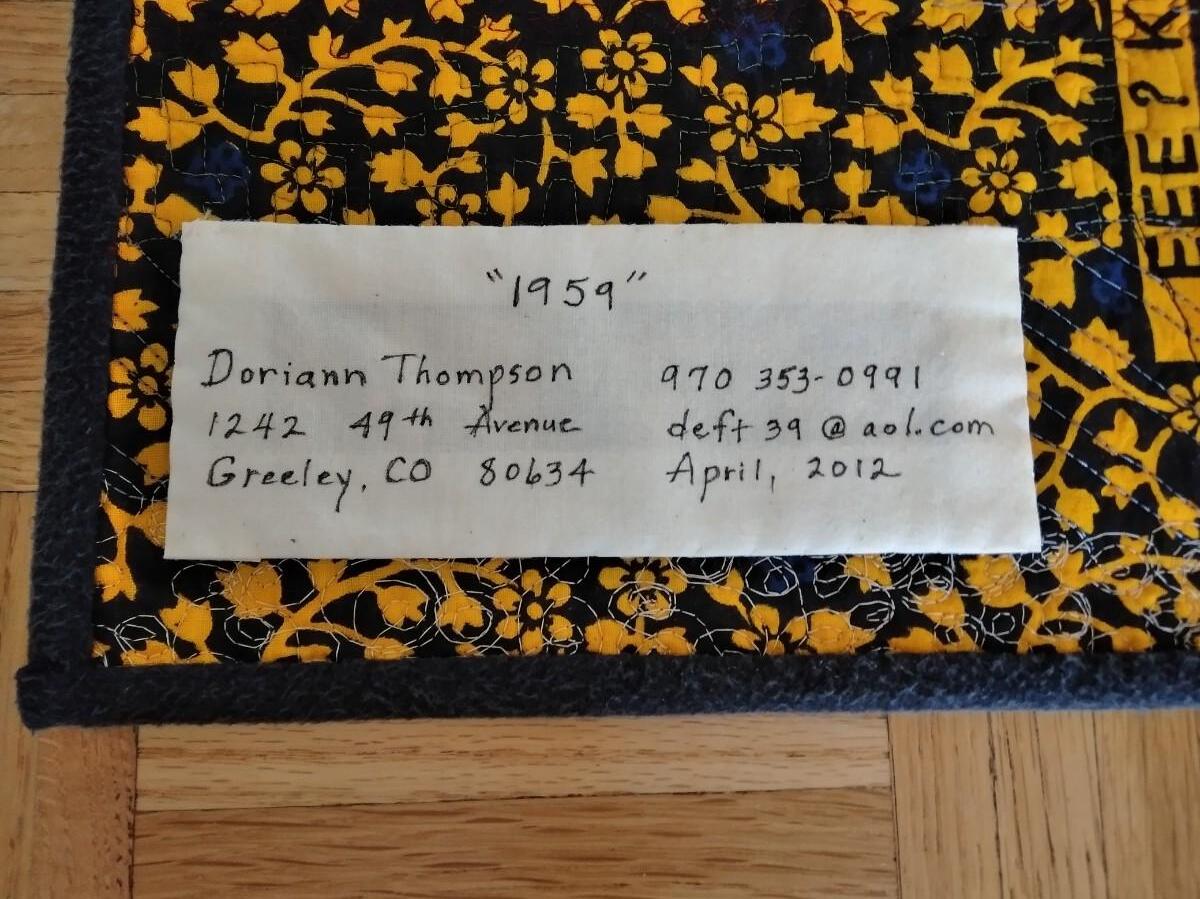 "1959"
Doriann Thompson 970 353-0991
1242 49th Avenue deft39@aol.com
Greeley, CO 80634 April, 2012
EE? K